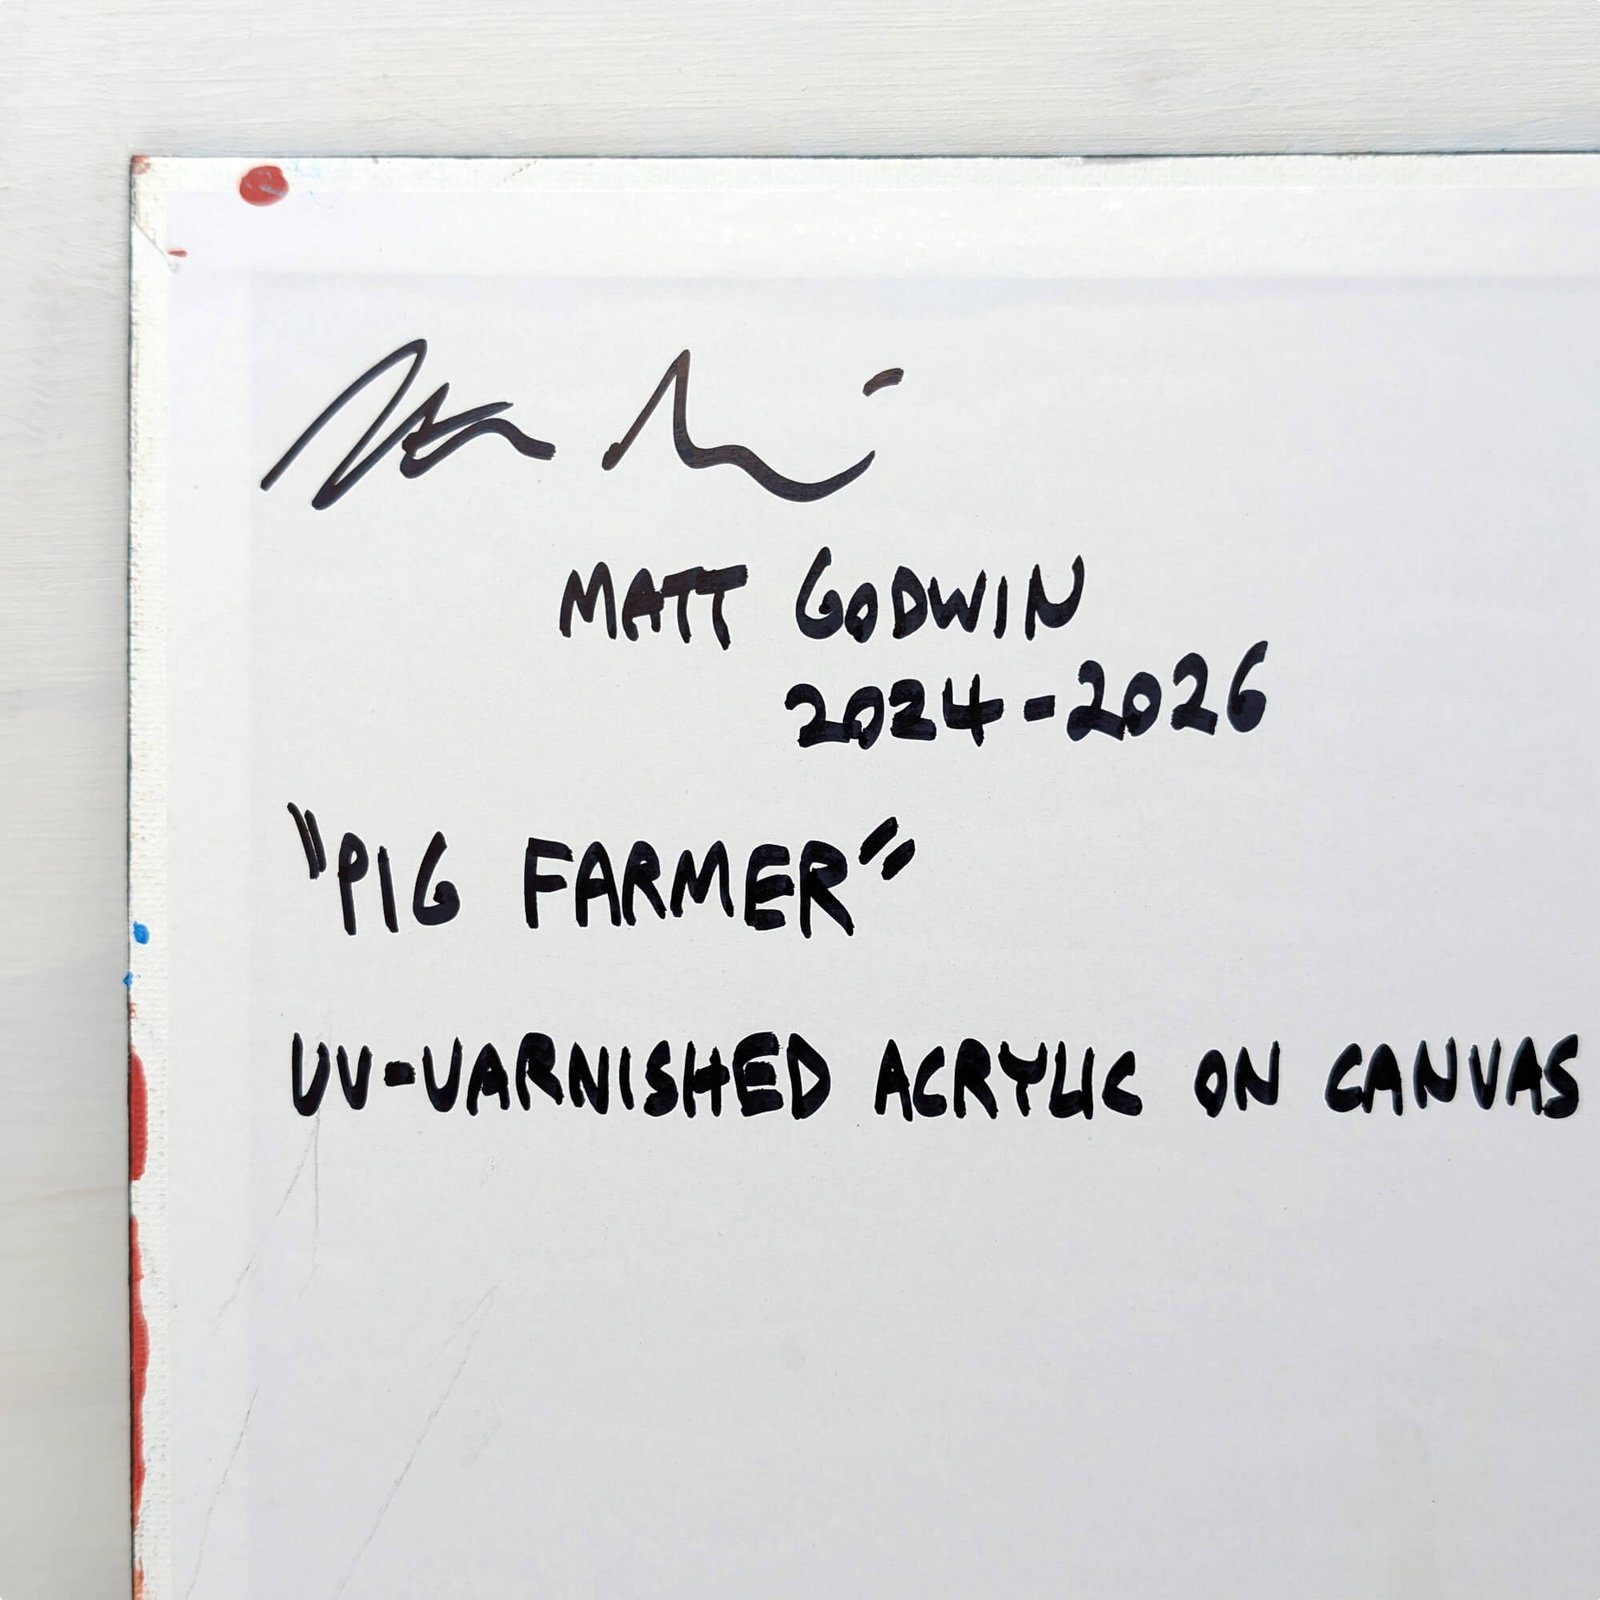 MATT GODWIN
2024-2026
"PIG FARMER"
UV-VARNISHED ACRYLIC ON CANVAS